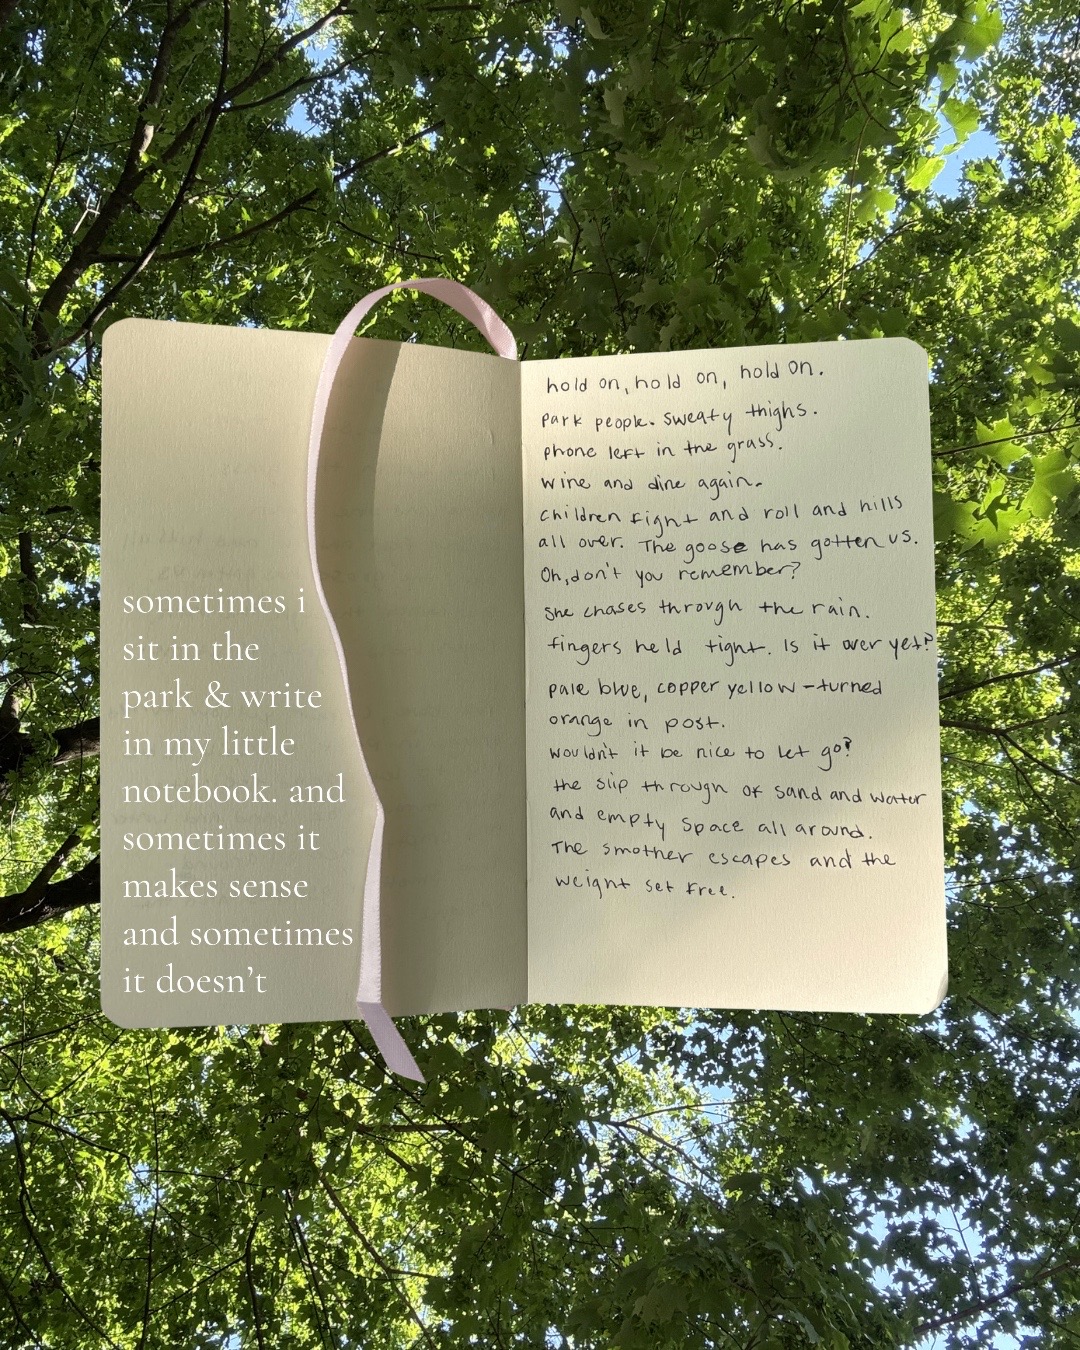 sometimes i
sit in the
park & write
in my little
notebook. and
sometimes it
makes sense
and sometimes
it doesn't
hold on, hold on, hold on.
park people. sweaty thighs.
phone left in the grass.
wine and dine again.
children fight and roll and hills
all over. The goose has gotten us.
Oh, don't you remember?
she chases through the rain.
fingers held tight. Is it over yet?
pale blue, copper yellow - turned
orange in post.
wouldn't it be nice to let go?
the slip through of sand and water
and empty space all around.
The smother escapes and the
weight set free.